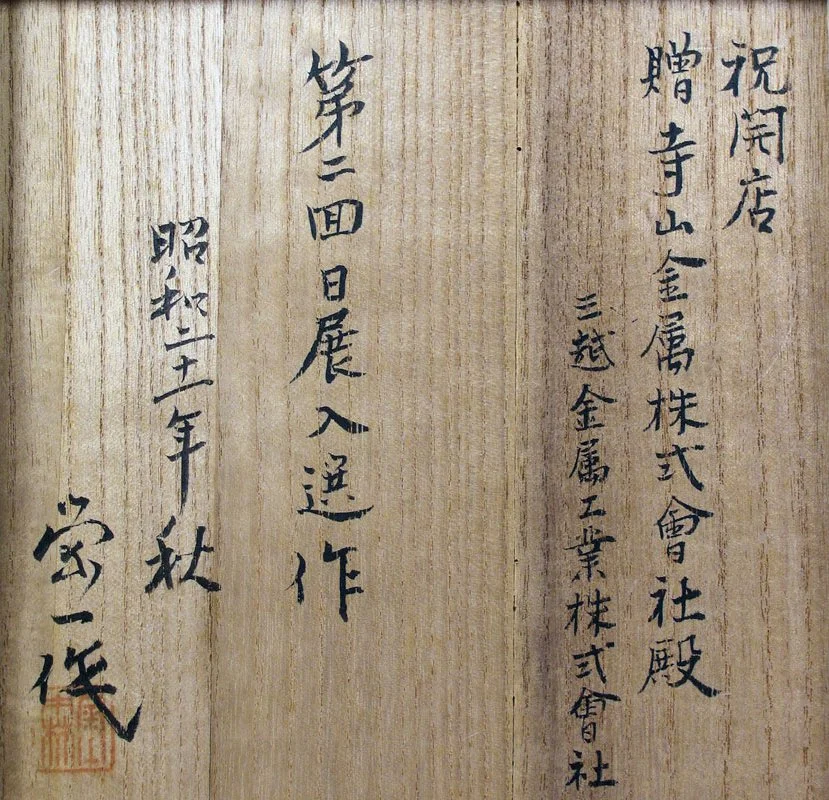 祝開店
贈 寺山金属株式會社殿
三越金属工業株式會社
第二囬日展入選作
昭和二十一年秋